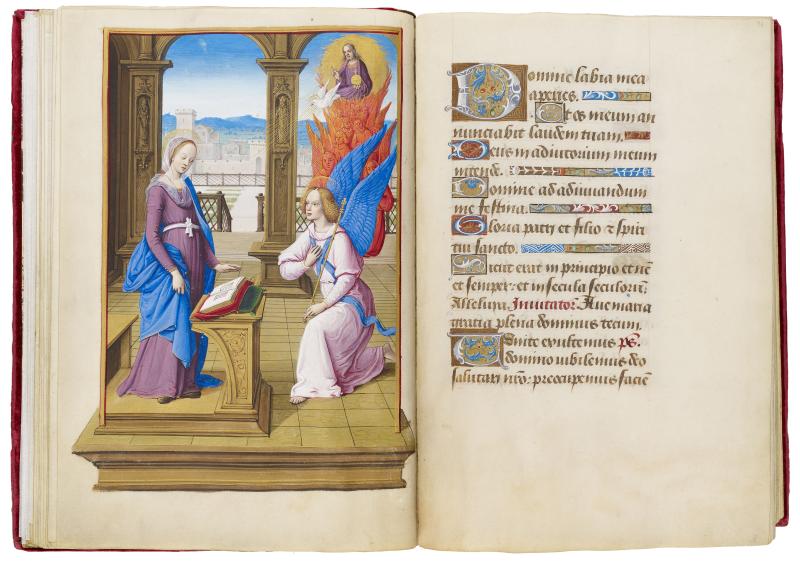 Domine labia mea
aperies.
Et os meum an
nunciabit laudem tuam.
Deus in adiutorium meum
intende.
Domine ad adiuvandum
me festina.
Gloria patri et filio et spiri
tui sancto.
Sicut erat in principio et nc̄
et semper: et in secula seculorū.
Alleluya. Invitator. Ave maria
gratia plena dominus tecum.
Venite exultemus ps.
domino iubilemus deo
salutari nr̄o: preocupemus faciē